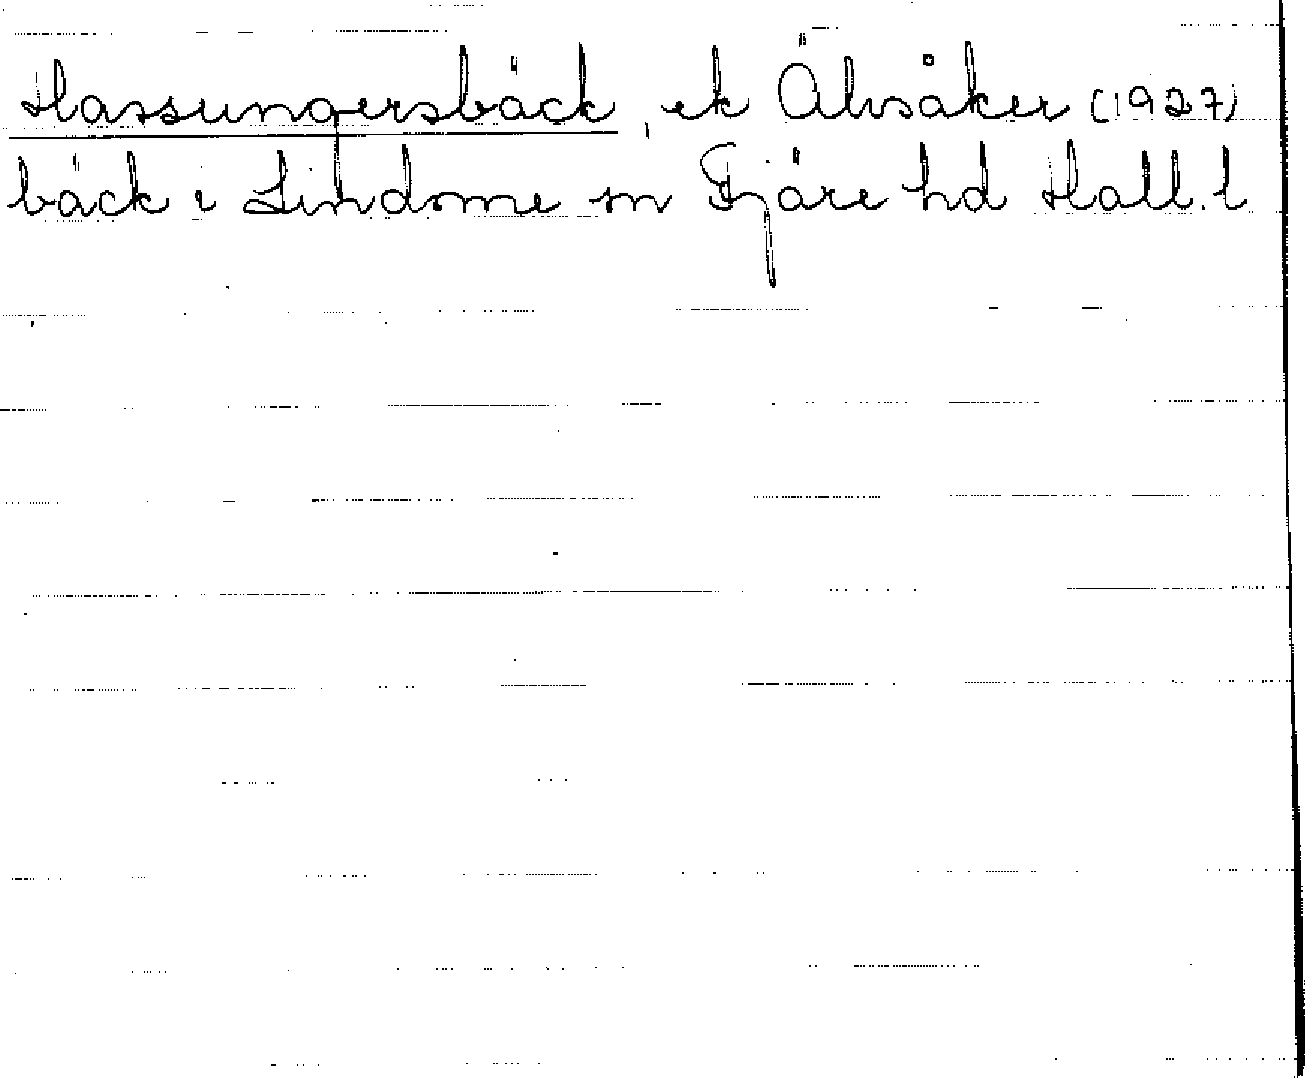 Hassungersbäck, ek Älvsåker (1927)
bäck i Lindome sn Fjäre hd Hall. l